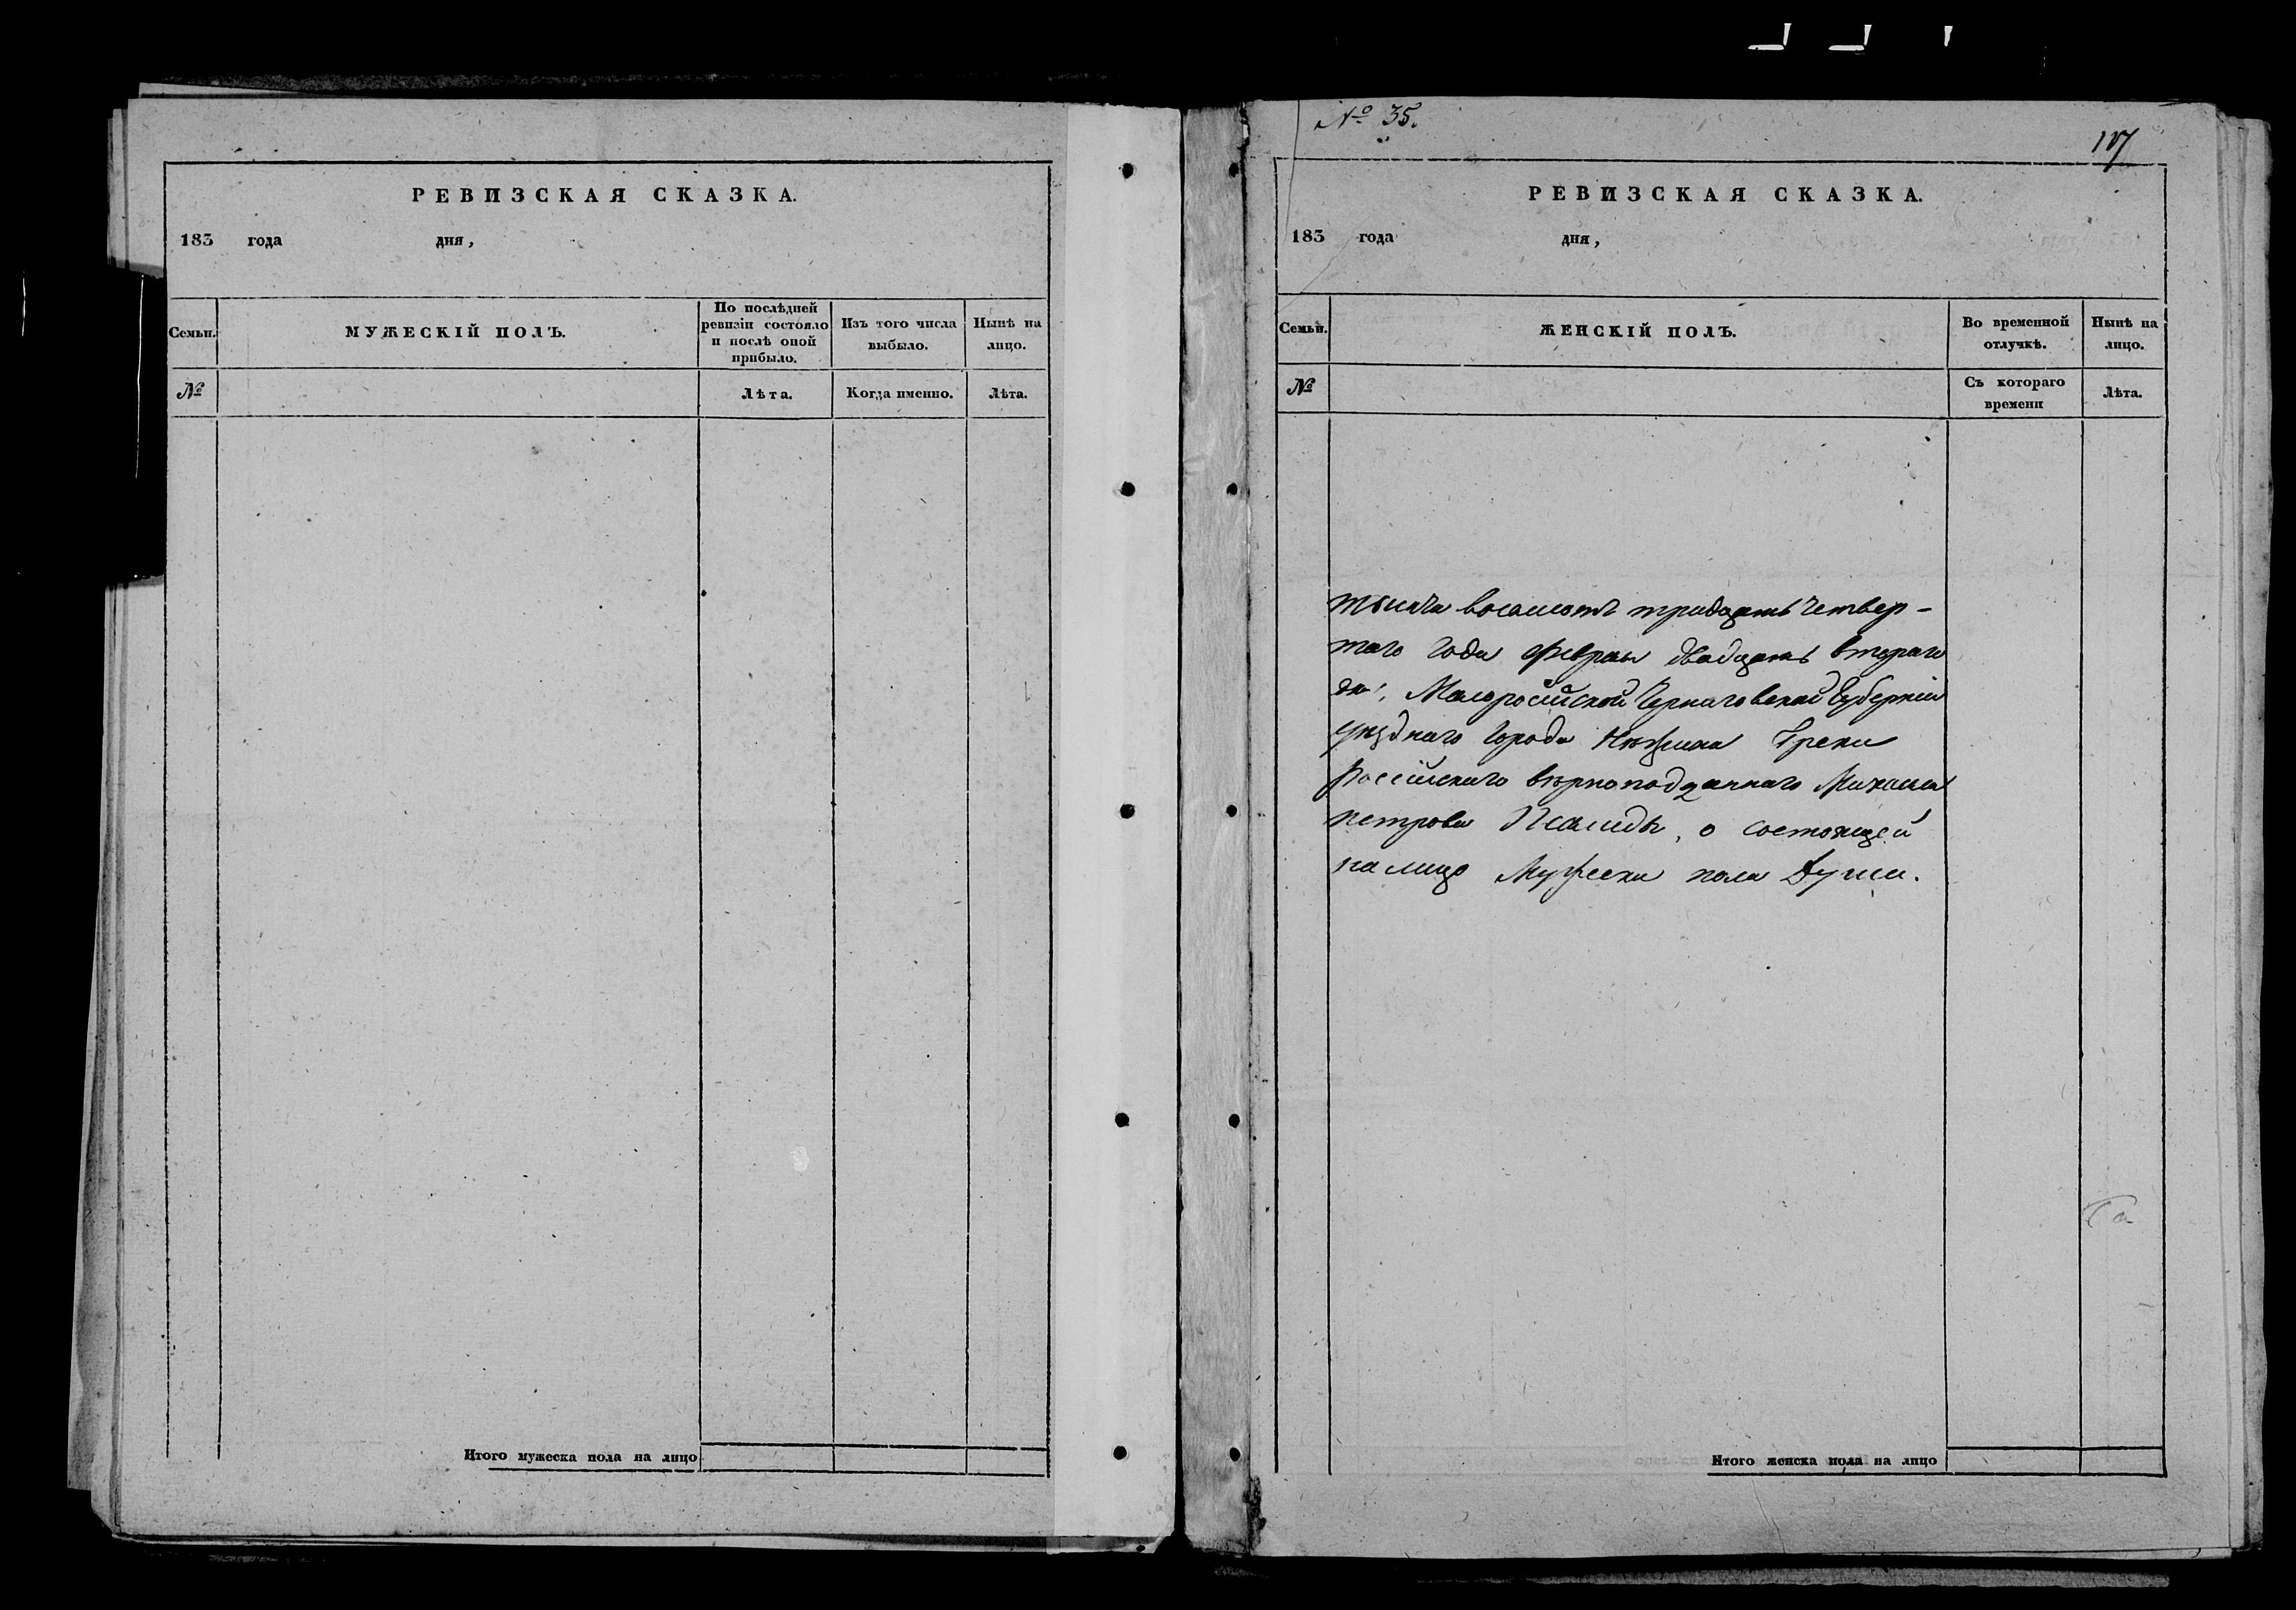 РЕВИЗСКАЯ СКАЗКА.
183 года дня,
Семьи. МУЖЕСКІЙ ПОЛЪ. По послѣдней ревизіи состояло и послѣ оной прибыло. Изъ того числа выбыло. Нынѣ на лицо.
№ Лѣта. Когда именно. Лѣта.
Итого мужеска пола на лицо
№ 35.
РЕВИЗСКАЯ СКАЗКА.
183 года дня,
Семьи. ЖЕНСКІЙ ПОЛЪ. Во временной отлучкѣ. Нынѣ на лицо.
№ Съ котораго времени Лѣта.
тысяча восемсотъ тридцать четвер-
таго года февраля двадцать втораго
дня, Малоросійской Черниговской Губерніи
уѣзднаго города Нѣжина Грека
Россійскаго вѣрноподданнаго Михаила
петрова, о состоящей
на лицо Мужеска пола Души.
Итого женска пола на лицо